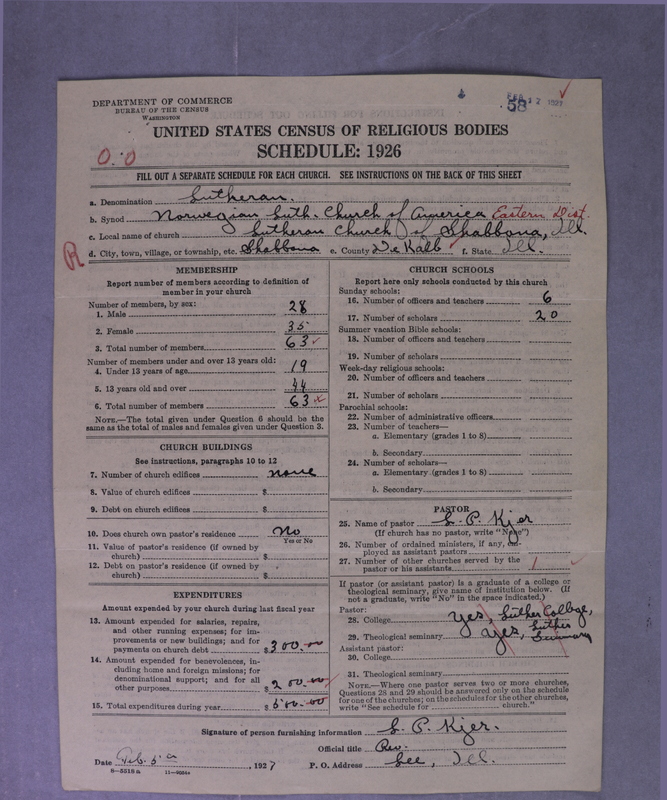 DEPARTMENT OF COMMERCE
BUREAU OF THE CENSUS
WASHINGTON
FEB 12 1927
58
UNITED STATES CENSUS OF RELIGIOUS BODIES
SCHEDULE: 1926
0.0
FILL OUT A SEPARATE SCHEDULE FOR EACH CHURCH. SEE INSTRUCTIONS ON THE BACK OF THIS SHEET
a. Denomination Lutheran.
b. Synod Norwegian Luth. Church of America Eastern Dist.
c. Local name of church Lutheran Church of Shabbona, Ill.
R
d. City, town, village, or township, etc. Shabbona e. County De Kalb f. State Ill.
MEMBERSHIP
Report number of members according to definition of
member in your church
Number of members, by sex:
1. Male 28
2. Female 35
3. Total number of members 63
Number of members under and over 13 years old:
4. Under 13 years of age 19
5. 13 years old and over 44
6. Total number of members 63
NOTE.—The total given under Question 6 should be the
same as the total of males and females given under Question 3.
CHURCH BUILDINGS
See instructions, paragraphs 10 to 12
7. Number of church edifices none
8. Value of church edifices $
9. Debt on church edifices $
10. Does church own pastor's residence No
Yes or No
11. Value of pastor's residence (if owned by
church) $
12. Debt on pastor's residence (if owned by
church) $
EXPENDITURES
Amount expended by your church during last fiscal year
13. Amount expended for salaries, repairs,
and other running expenses; for im-
provements or new buildings; and for
payments on church debt $300.00
14. Amount expended for benevolences, in-
cluding home and foreign missions; for
denominational support; and for all
other purposes $200.00
15. Total expenditures during year $500.00
CHURCH SCHOOLS
Report here only schools conducted by this church
Sunday schools:
16. Number of officers and teachers 6
17. Number of scholars 20
Summer vacation Bible schools:
18. Number of officers and teachers
19. Number of scholars
Week-day religious schools:
20. Number of officers and teachers
21. Number of scholars
Parochial schools:
22. Number of administrative officers
23. Number of teachers—
a. Elementary (grades 1 to 8)
b. Secondary
24. Number of scholars—
a. Elementary (grades 1 to 8)
b. Secondary
PASTOR
25. Name of pastor L. P. Kjer
(If church has no pastor, write "None")
26. Number of ordained ministers, if any, em-
ployed as assistant pastors
27. Number of other churches served by the
pastor or his assistants 1
If pastor (or assistant pastor) is a graduate of a college or
theological seminary, give name of institution below. (If
not a graduate, write "No" in the space indicated.)
Pastor:
28. College yes, Luther College,
29. Theological seminary yes, Luther Seminary
Assistant pastor:
30. College
31. Theological seminary
NOTE.—Where one pastor serves two or more churches,
Questions 28 and 29 should be answered only on the schedule
for one of the churches; on the schedules for the other churches,
write "See schedule for church."
Signature of person furnishing information L. P. Kjer.
Official title Rev.
Date Feb. 5th, 1927 P. O. Address Lee, Ill.
8—5518a 11—9054